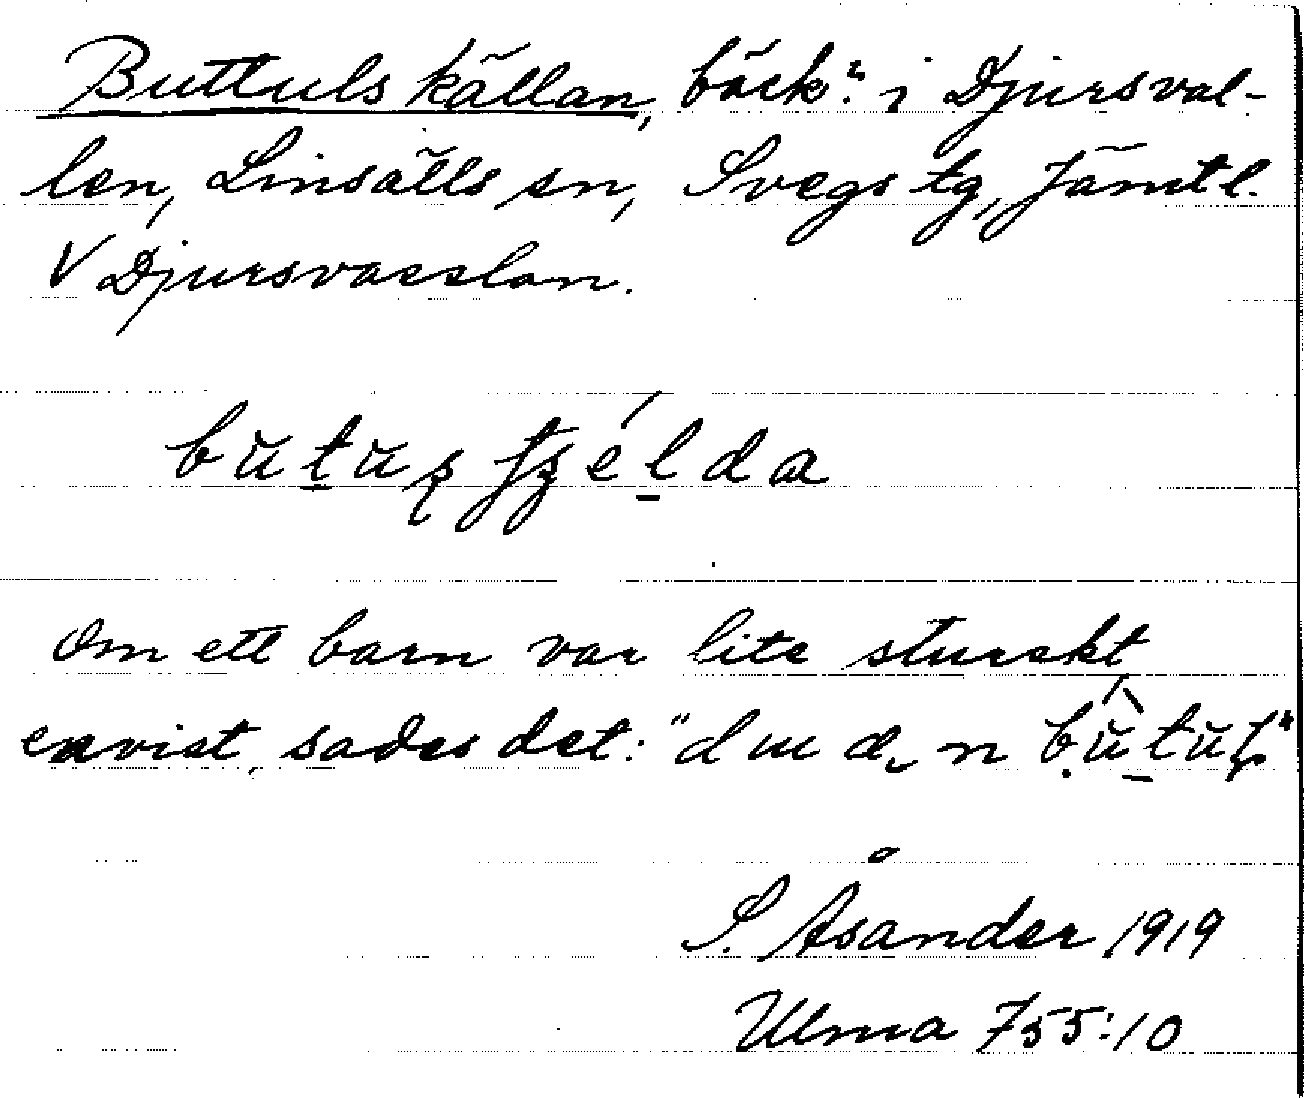 Buttulskällan, bäck? i Djursval-
len, Linsälls sn, Svegs tg, Jämtl.
V Djursvasslan.
Om ett barn var lite sturskt
envist, sades det: "
S. Åsander 1919
Ulma 755:10